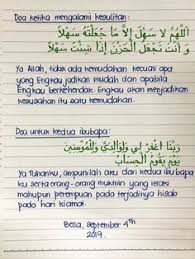 Doa ketika mengalami kesulitan :
اَللَّهُمَّ لَا سَهْلَ إِلَّا مَا جَعَلْتَهُ سَهْلًا
وَأَنْتَ تَجْعَلُ الْحَزْنَ إِذَا شِئْتَ سَهْلًا
Ya Allah, tidak ada kemudahan kecuali apa
yang Engkau jadikan mudah dan apabila
Engkau berkehendak Engkau akan menjadikan
kesusahan itu satu kemudahan.
Doa untuk kedua ibubapa :
رَبَّنَا اغْفِرْ لِي وَلِوَالِدَيَّ وَلِلْمُؤْمِنِينَ
يَوْمَ يَقُومُ الْحِسَابُ
Ya Tuhanku, ampunilah aku dan kedua ibu bapa
ku serta orang-orang mukmin yang lelaki
mahupun perempuan pada terjadinya hisab
pada hari kiamat.
September 4th
2019.